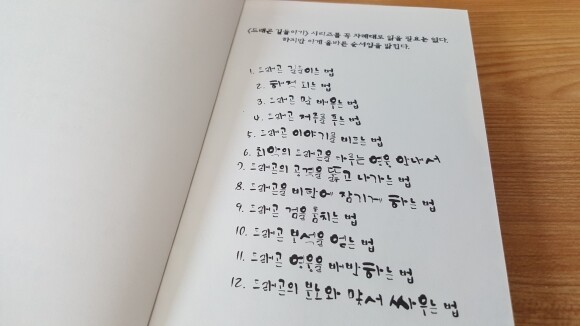 〈드래곤 길들이기〉 시리즈를 꼭 차례대로 읽을 필요는 없다.
하지만 이게 올바른 순서임을 밝힌다.
1. 드래곤 길들이는 법
2. 해적 되는 법
3. 드래곤 말 배우는 법
4. 드래곤 저주를 푸는 법
5. 드래곤 이야기를 비트는 법
6. 최악의 드래곤을 다루는 영웅 안내서
7. 드래곤의 공격을 뚫고 나가는 법
8. 드래곤을 비탄에 잠기게 하는 법
9. 드래곤 검을 훔치는 법
10. 드래곤 보석을 얻는 법
11. 드래곤 영웅을 배반하는 법
12. 드래곤의 분노와 맞서 싸우는 법